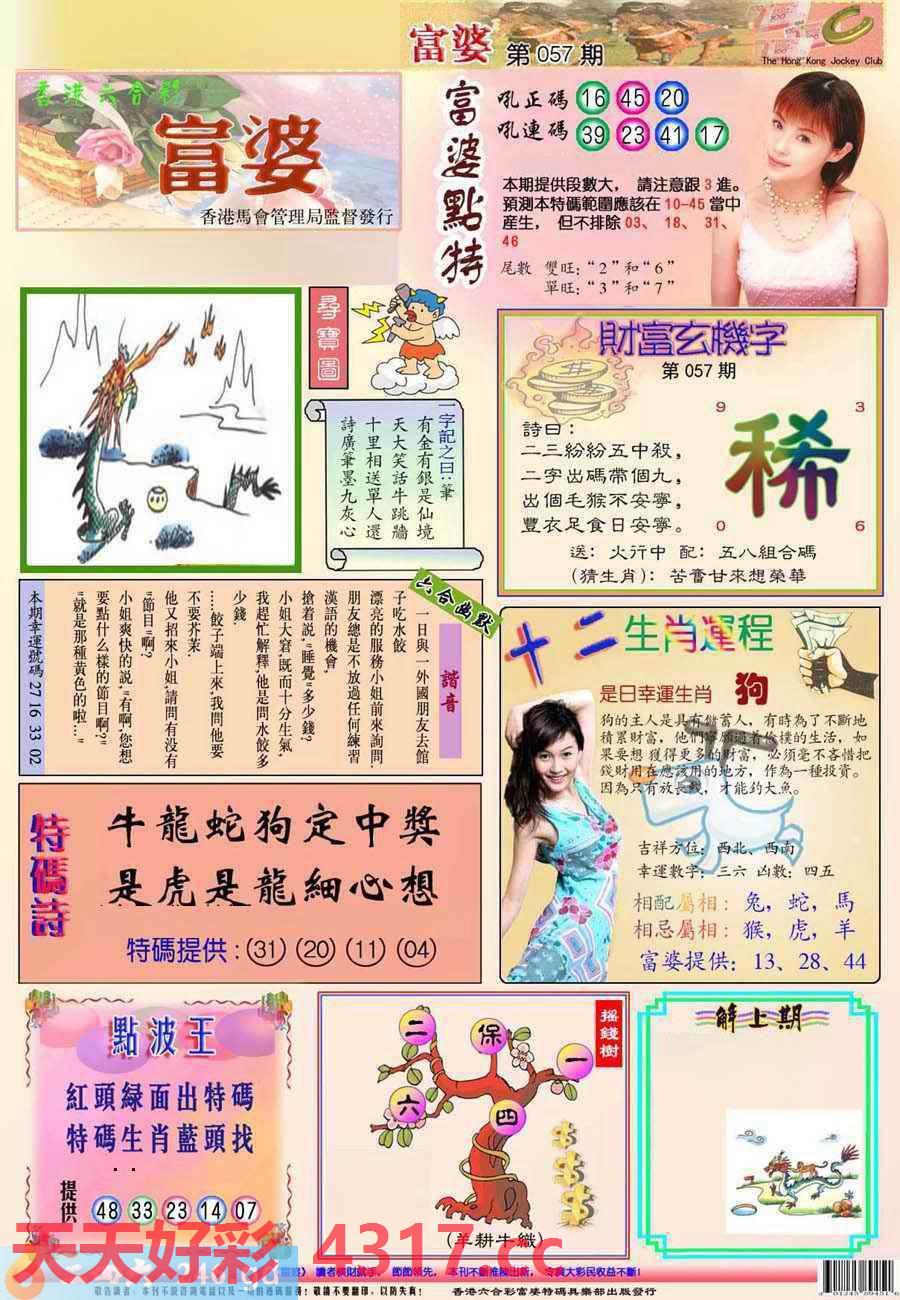 富婆 第 057 期
The Hong Kong Jockey Club
香港六合彩
富婆
香港馬會管理局監督發行
富婆點特
吼正碼 16 45 20
吼連碼 39 23 41 17
本期提供段數大， 請注意跟 3 進。
預測本特碼範圍應該在 10-45 當中
産生， 但不排除 03、 18、 31、
46
尾數 雙旺：“2”和“6”
單旺：“3”和“7”
尋寶圖
一字記之曰：筆
有金有銀是仙境
天大笑話牛跳牆
十里相送單人還
詩廣筆墨九灰心
財富玄機字
第 057 期
詩曰：
二三紛紛五中殺，
二字出碼帶個九，
出個毛猴不安寧，
豐衣足食日安寧。
9 3
稀
0 6
送：火行中 配：五八組合碼
（猜生肖）：苦奮甘來想榮華
六合幽默
諧音
一日與一外國朋友去館
子吃水餃
漂亮的服務小姐前來詢問,
朋友總是不放過任何練習
漢語的機會,
搶着説,"睡覺"多少錢?
小姐大窘,既而十分生氣,
我趕忙解釋,他是問水餃多
少錢.
....餃子端上來,我問他要
不要芥茉.
他又招來小姐,請問有没有
"節目"啊?
小姐爽快的説,"有啊,您想
要點什么樣的節目啊?"
"就是那種黄色的啦..."
本期幸運號碼 27 16 33 02
十二生肖運程
是日幸運生肖 狗
狗的主人是具有附蓄人，有時為了不斷地
積累財富，他們寧願過着儉樸的生活，如
果要想 獲得更多的財富，必須毫不吝惜把
錢財用在應該用的地方，作為一種投資。
因為只有放長綫，才能釣大魚。
吉祥方位：西北、西南
幸運數字：三六 凶數：四五
相配屬相：兔，蛇，馬
相忌屬相：猴，虎，羊
富婆提供：13、28、44
特碼詩
牛龍蛇狗定中獎
是虎是龍細心想
特碼提供：31 20 11 04
點波王
紅頭緑面出特碼
特碼生肖藍頭找
提供 48 33 23 14 07
搖錢樹
二 保 一
六 四
（羊耕牛織）
解上期
天天好彩 4317.cc
讀者橫財就手， 節節領先， 本刊不斷推陳出新， 令廣大彩民收益不斷！
香港六合彩富婆特碼俱樂部出版發行